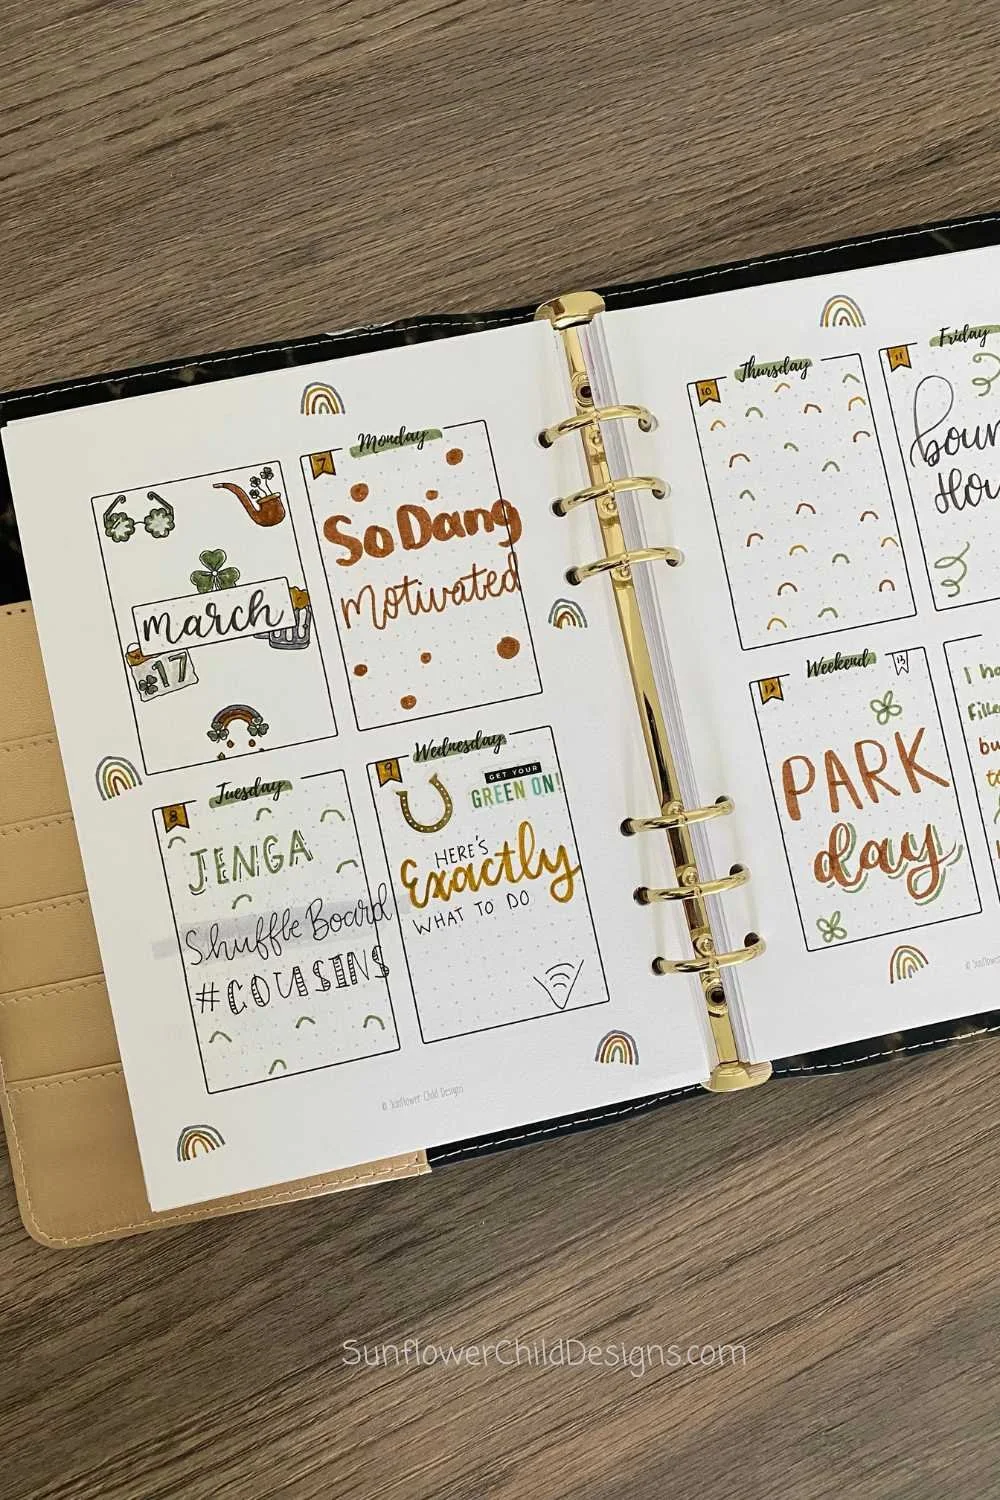 march
17
Monday
7
So Dang
Motivated
Tuesday
8
JENGA
Shuffle Board
#COUSINS
Wednesday
9
GET YOUR
GREEN ON!
HERE'S
Exactly
WHAT TO DO
© Sunflower Child Designs
Thursday
10
Friday
11
Weekend
12
13
PARK
day
I
SunflowerChildDesigns.com